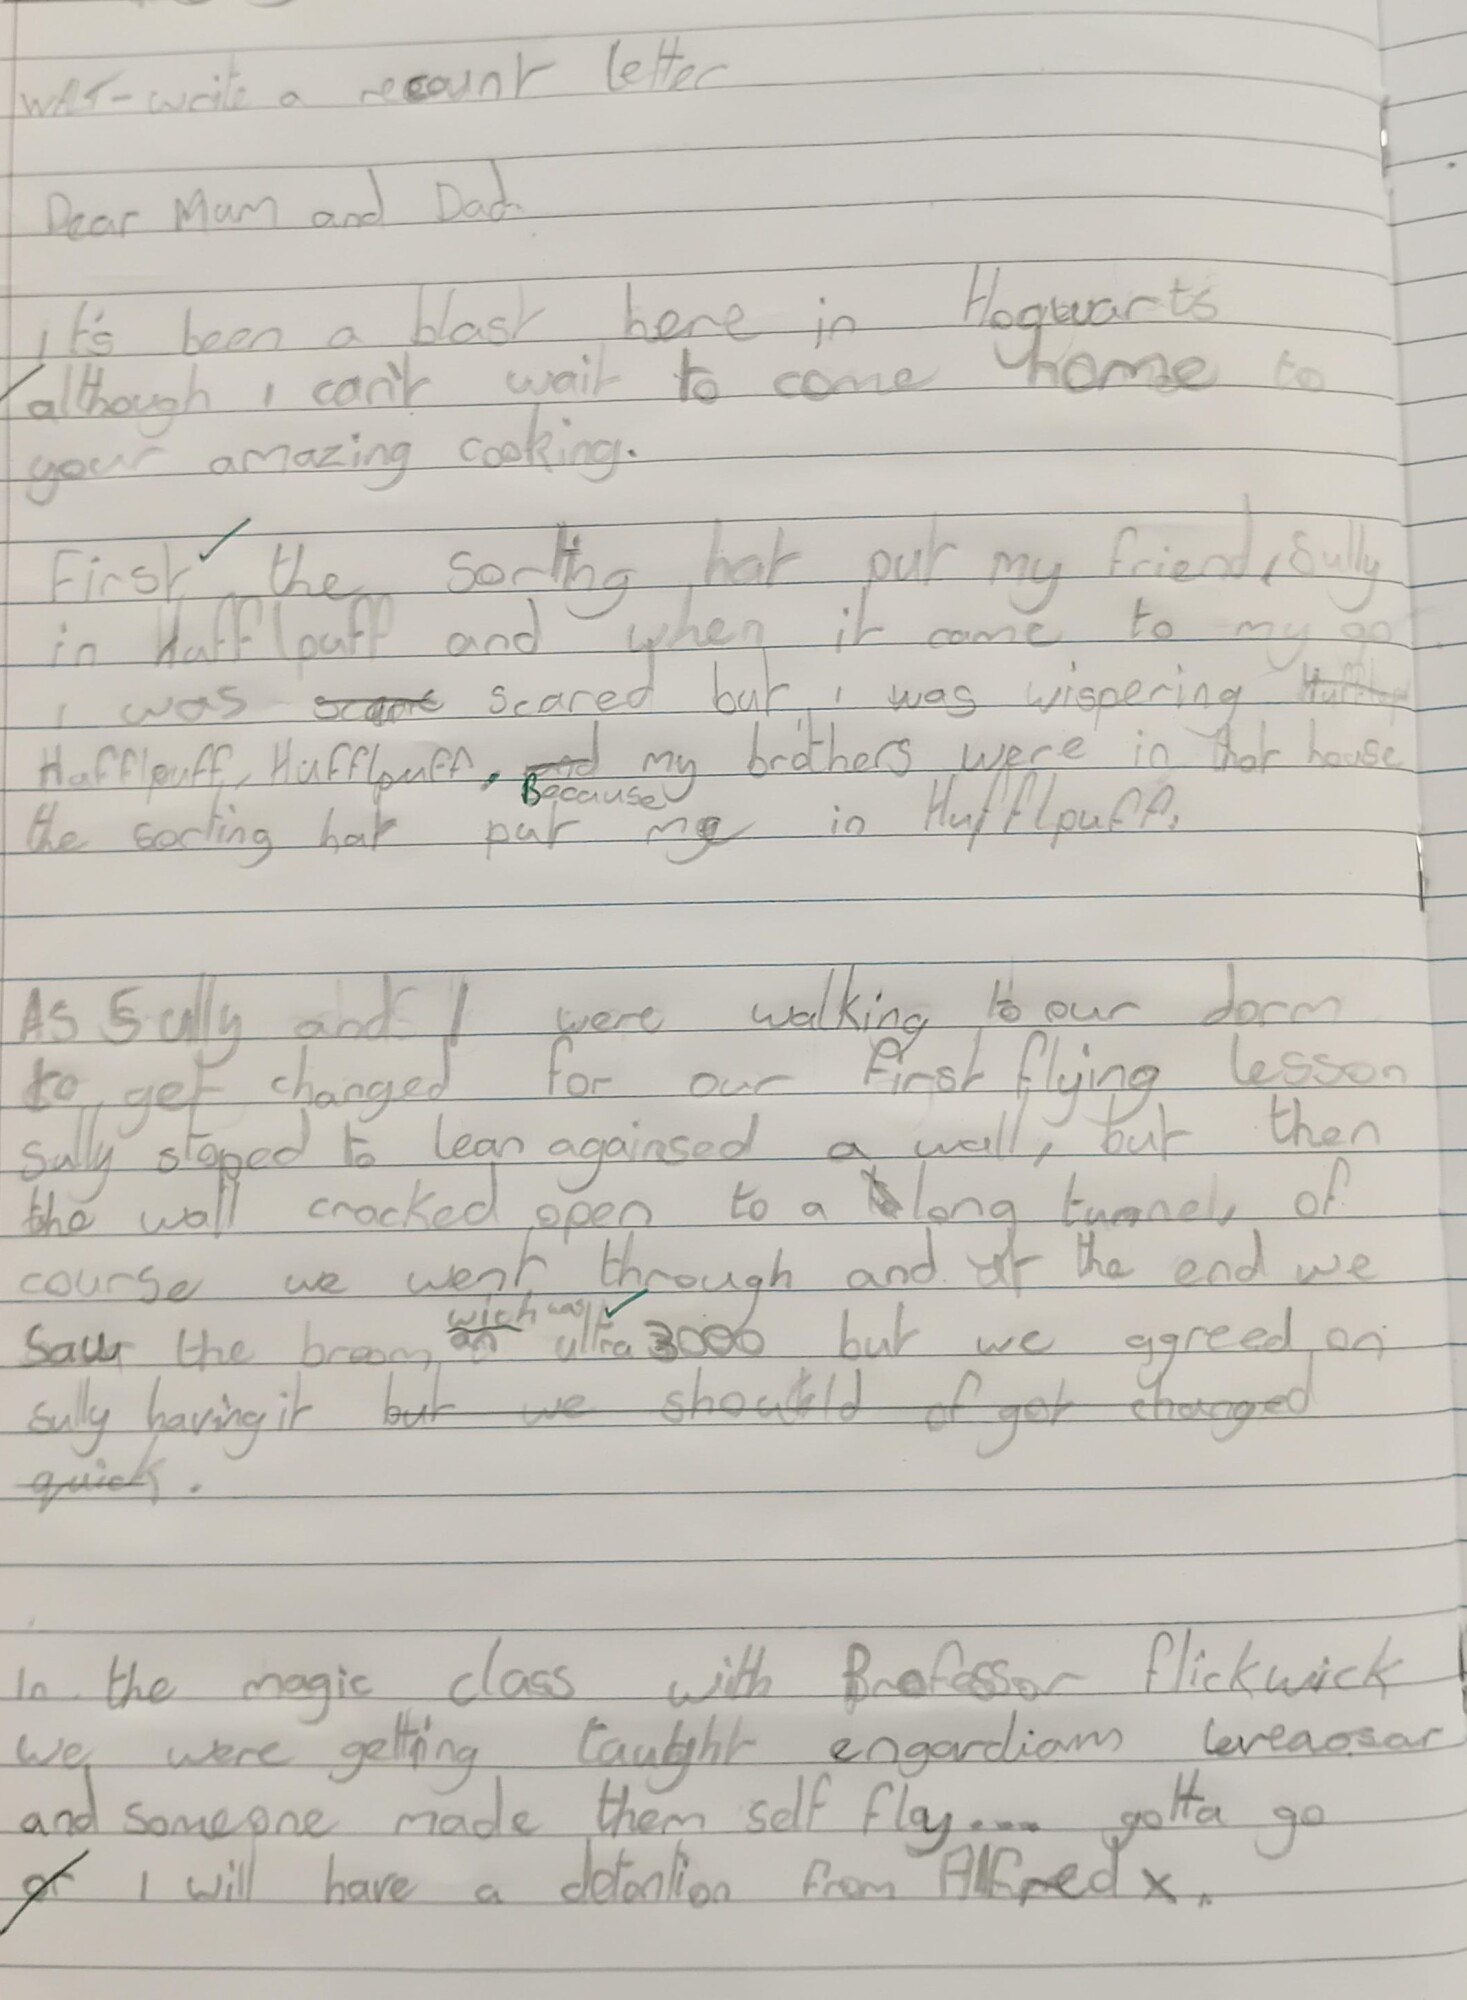 WAT - write a recount letter
Dear Mum and Dad
it's been a blast here in Hogwarts
although i can't wait to come home to
your amazing cooking.
First the sorting hat put my friend, Sully
in Hufflpuff and when it came to my go
i was scared but i was wispering
Hufflpuff, Hufflpuff, my brothers were in that house
Because
the sorting hat put me in Hufflpuff.
As Sully and I were walking to our dorm
to get changed for our first flying lesson
Sully stoped to lean againsed a wall, but then
the wall cracked open to a long tunnel, of
course we went through and at the end we
wich was
saw the broom ultra 3000 but we agreed on
sully having it but we should of got changed
quick.
In the magic class with Professor flickwick
we were getting taught engardiam leveaosar
and someone made them self flay.... gotta go
or i will have a detontion from Alfred x.